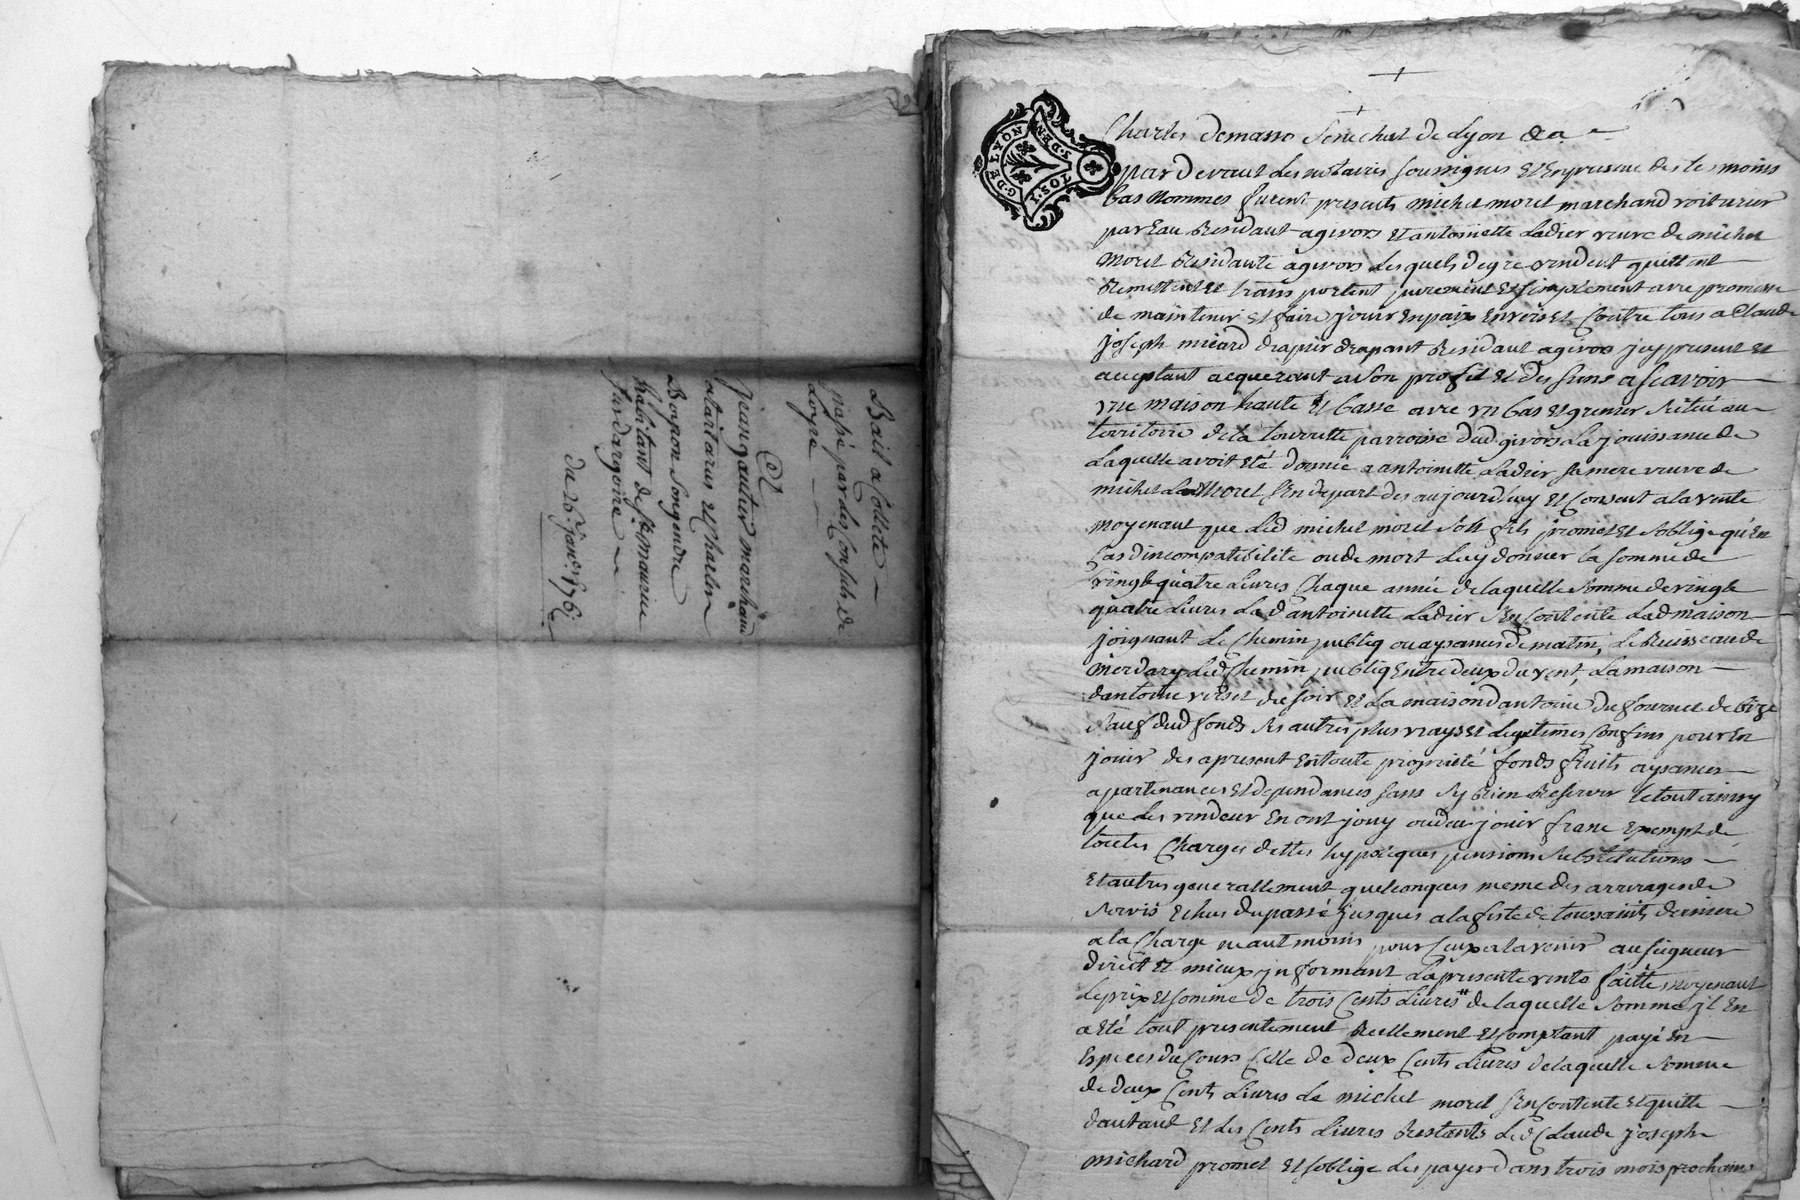 Bail a Collecte
passé par les Consuls de
Loyre
@
jean gautier marchand
alartarius et Charles
Boyron Songendre
habitant de St maurice
sur dargoire
du 26e janer 1761
G. DE LYON
S. DEN. TOS. I. SOL
Charles demasso Senechal de Lyon &a
par devant Les notaires soussignes Et En presence des tesmoins
bas Nommes furent presents michel morel marchand voiturier
par Eau Residant a givors Et antoinette Ladier veuve de michel
Morel Residante a givors Lesquels de gre vendent quittent
Remettent Et transportent purement Et simplement avec promesse
de maintenir Et faire jouir En paix Envers Et Contre tous a Claude
joseph micard drapier drapant Residant a givors jcy present Et
acceptant acquerant a Son profit Et des siens a scavoir
vne maison haute Et basse avec vn bas Et grenier Situé au
territoire de la tourrette parroisse dud givors La jouissance de
Laquelle avoit Eté donnée a antoinette Ladier sa mere veuve de
michel Morel S'En depart des aujourdhuy Et Consent a la vente
moyenant que Led michel morel Son fils promet Et S'oblige qu'En
Cas d'incompatibilite ou de mort Luy donner la somme de
vingt quatre Livres Chaque année de laquelle Somme de vingt
quatre Livres La d antoinette Ladier S'En Contente Lad maison
joignant Le Chemin publiq ou aysances de matin, Le Ruisseau de
Merdary Led Chemin publiq Entre deux du vent, La maison
d'antoine verset du soir Et La maison d'antoine du fournel de bize
Sauf dud fonds Ses autres plus vrays Et Legitimes Confins pour En
jouir des a present En toute propriete fonds fruits aysances
apartenances Et dependances sans Sy Rien Reserver le tout ainsy
que Les vendeur En ont jouy ou deu jouir franc Exempt de
toutes Charges dettes hypoteques pensions Substitutions
Et autres generallement quelconques meme des arrerages de
Servis Echus du passé jusques a la feste de toussaints derniere
a la Charge neantmoins pour Ceux a la venir au seigneur
direct Et mieux jnformant La presente vente faitte moyenant
Le prix Et somme de trois Cents Livres" de laquelle Somme jl En
a Eté tout presentement Reellement Et Comptant payé En
Especes du Cours Celle de deux Cents Livres de laquelle Somme
de deux Cents Livres Le michel morel S'En Contente Et quitte
d'autant Et Les Cents Livres Restants Led Claude joseph
michard promet Et S'oblige Les payer dans trois mois prochains